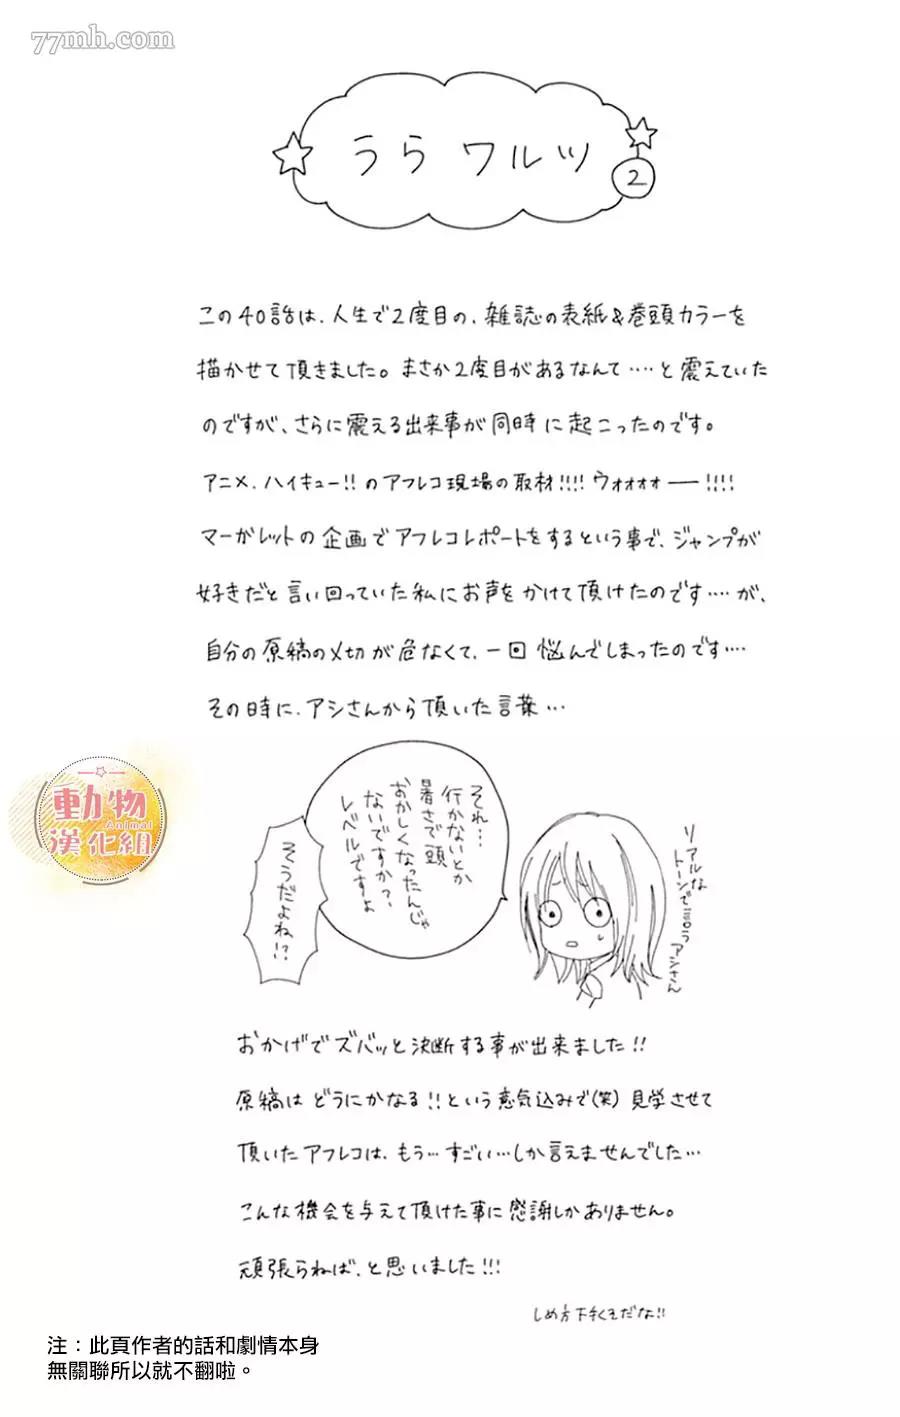 77mh.com
うらワルツ
2
この40話は、人生で2度目の、雑誌の表紙&巻頭カラーを
描かせて頂きました。まさか2度目があるなんて‥‥と震えていた
のですが、さらに震える出来事が同時に起こったのです。
アニメ、ハイキュー!!のアフレコ現場の取材!!!!ウォォォォー!!!!
マーガレットの企画でアフレコレポートをするという事で、ジャンプが
好きだと言い回っていた私にお声をかけて頂けたのです‥‥が、
自分の原稿の〆切が危なくて、一回悩んでしまったのです‥‥
その時に、アシさんから頂いた言葉…
それ…
行かないとか
暑さで頭
おかしくなったんじゃ
ないですか?
レベルですよ
そうだよね!?
リアルな
トーンで言うアシさん
動物
Animal
漢化組
おかげでズバッと決断する事が出来ました!!
原稿はどうにかなる!!という意気込みで(笑)見学させて
頂いたアフレコは、もう…すごい…しか言えませんでした…
こんな機会を与えて頂けた事に感謝しかありません。
頑張らねば、と思いました!!!
しめ方下手くそだな!!
注：此頁作者的話和劇情本身
無關聯所以就不翻啦。